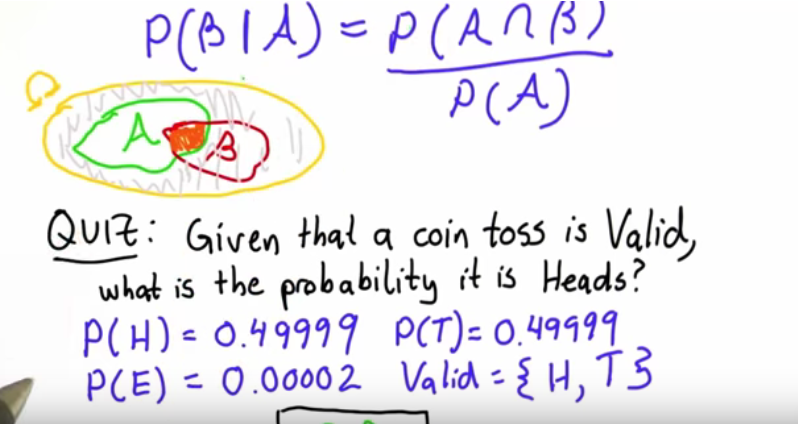 P(B|A) = P(A∩B)
P(A)
Ω
A B
QUIZ: Given that a coin toss is Valid,
what is the probability it is Heads?
P(H) = 0.49999 P(T) = 0.49999
P(E) = 0.00002 Valid = {H, T}